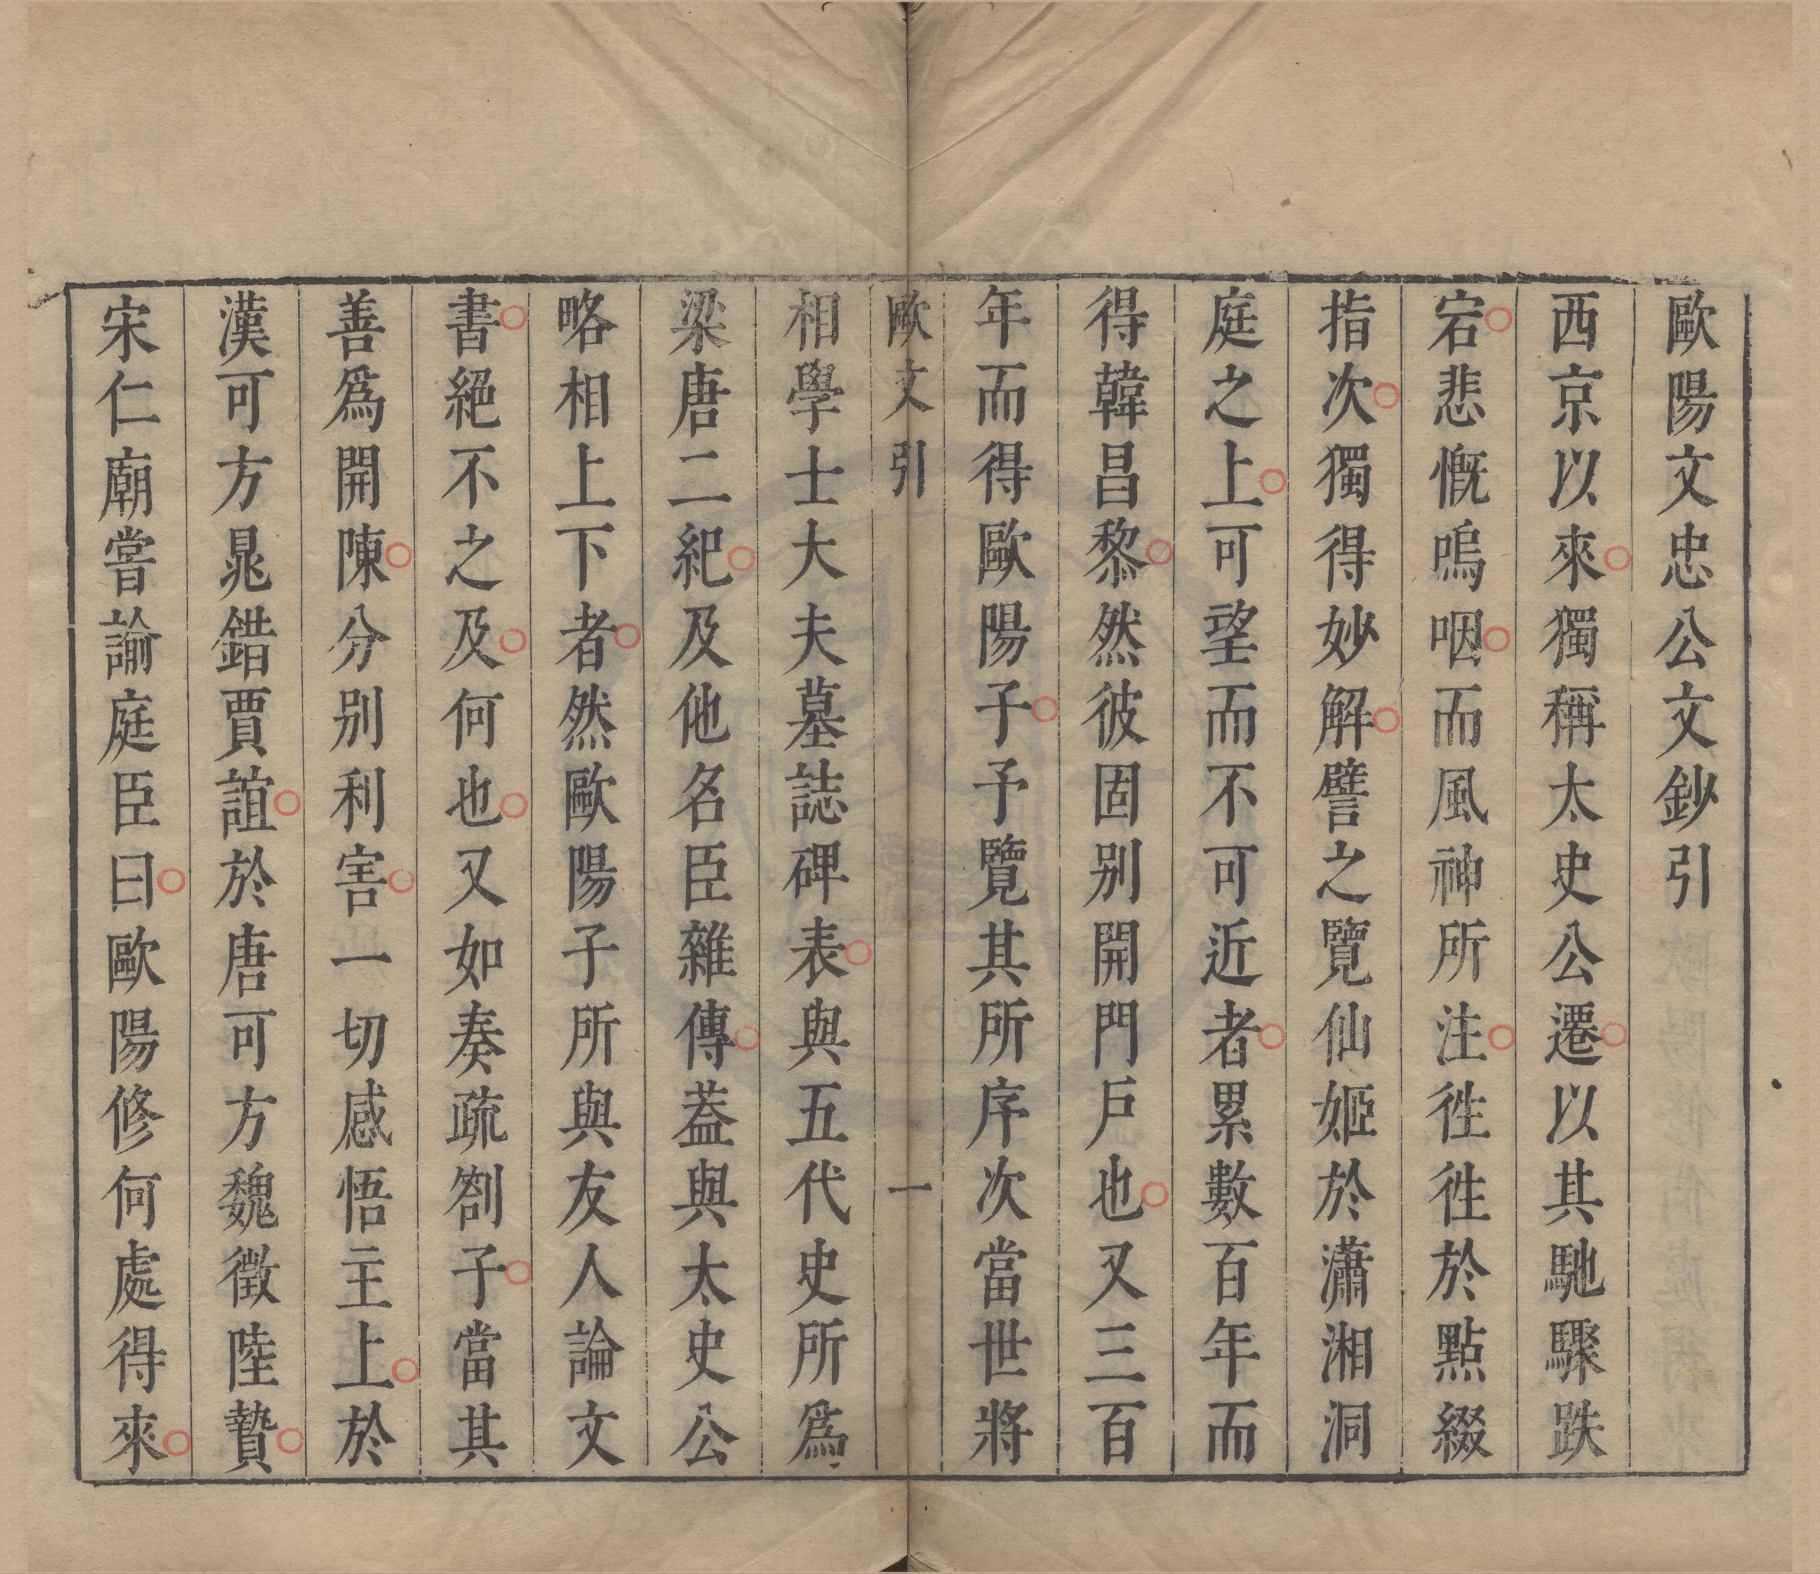 歐陽文忠公文鈔引
西京以來獨稱太史公遷以其馳驟跌
宕悲慨嗚咽而風神所注徃徃於點綴
指次獨得妙解譬之覽仙姬於瀟湘洞
庭之上可望而不可近者累數百年而
得韓昌黎然彼固别開門戶也又三百
年而得歐陽子予覽其所序次當世將
歐文引
一
相學士大夫墓誌碑表與五代史所爲
梁唐二紀及他名臣雜傳葢與太史公
略相上下者然歐陽子所與友人論文
書絕不之及何也又如奏疏劄子當其
善爲開陳分别利害一切感悟主上於
漢可方晁錯賈誼於唐可方魏徵陸贄
宋仁廟嘗諭庭臣曰歐陽修何處得來